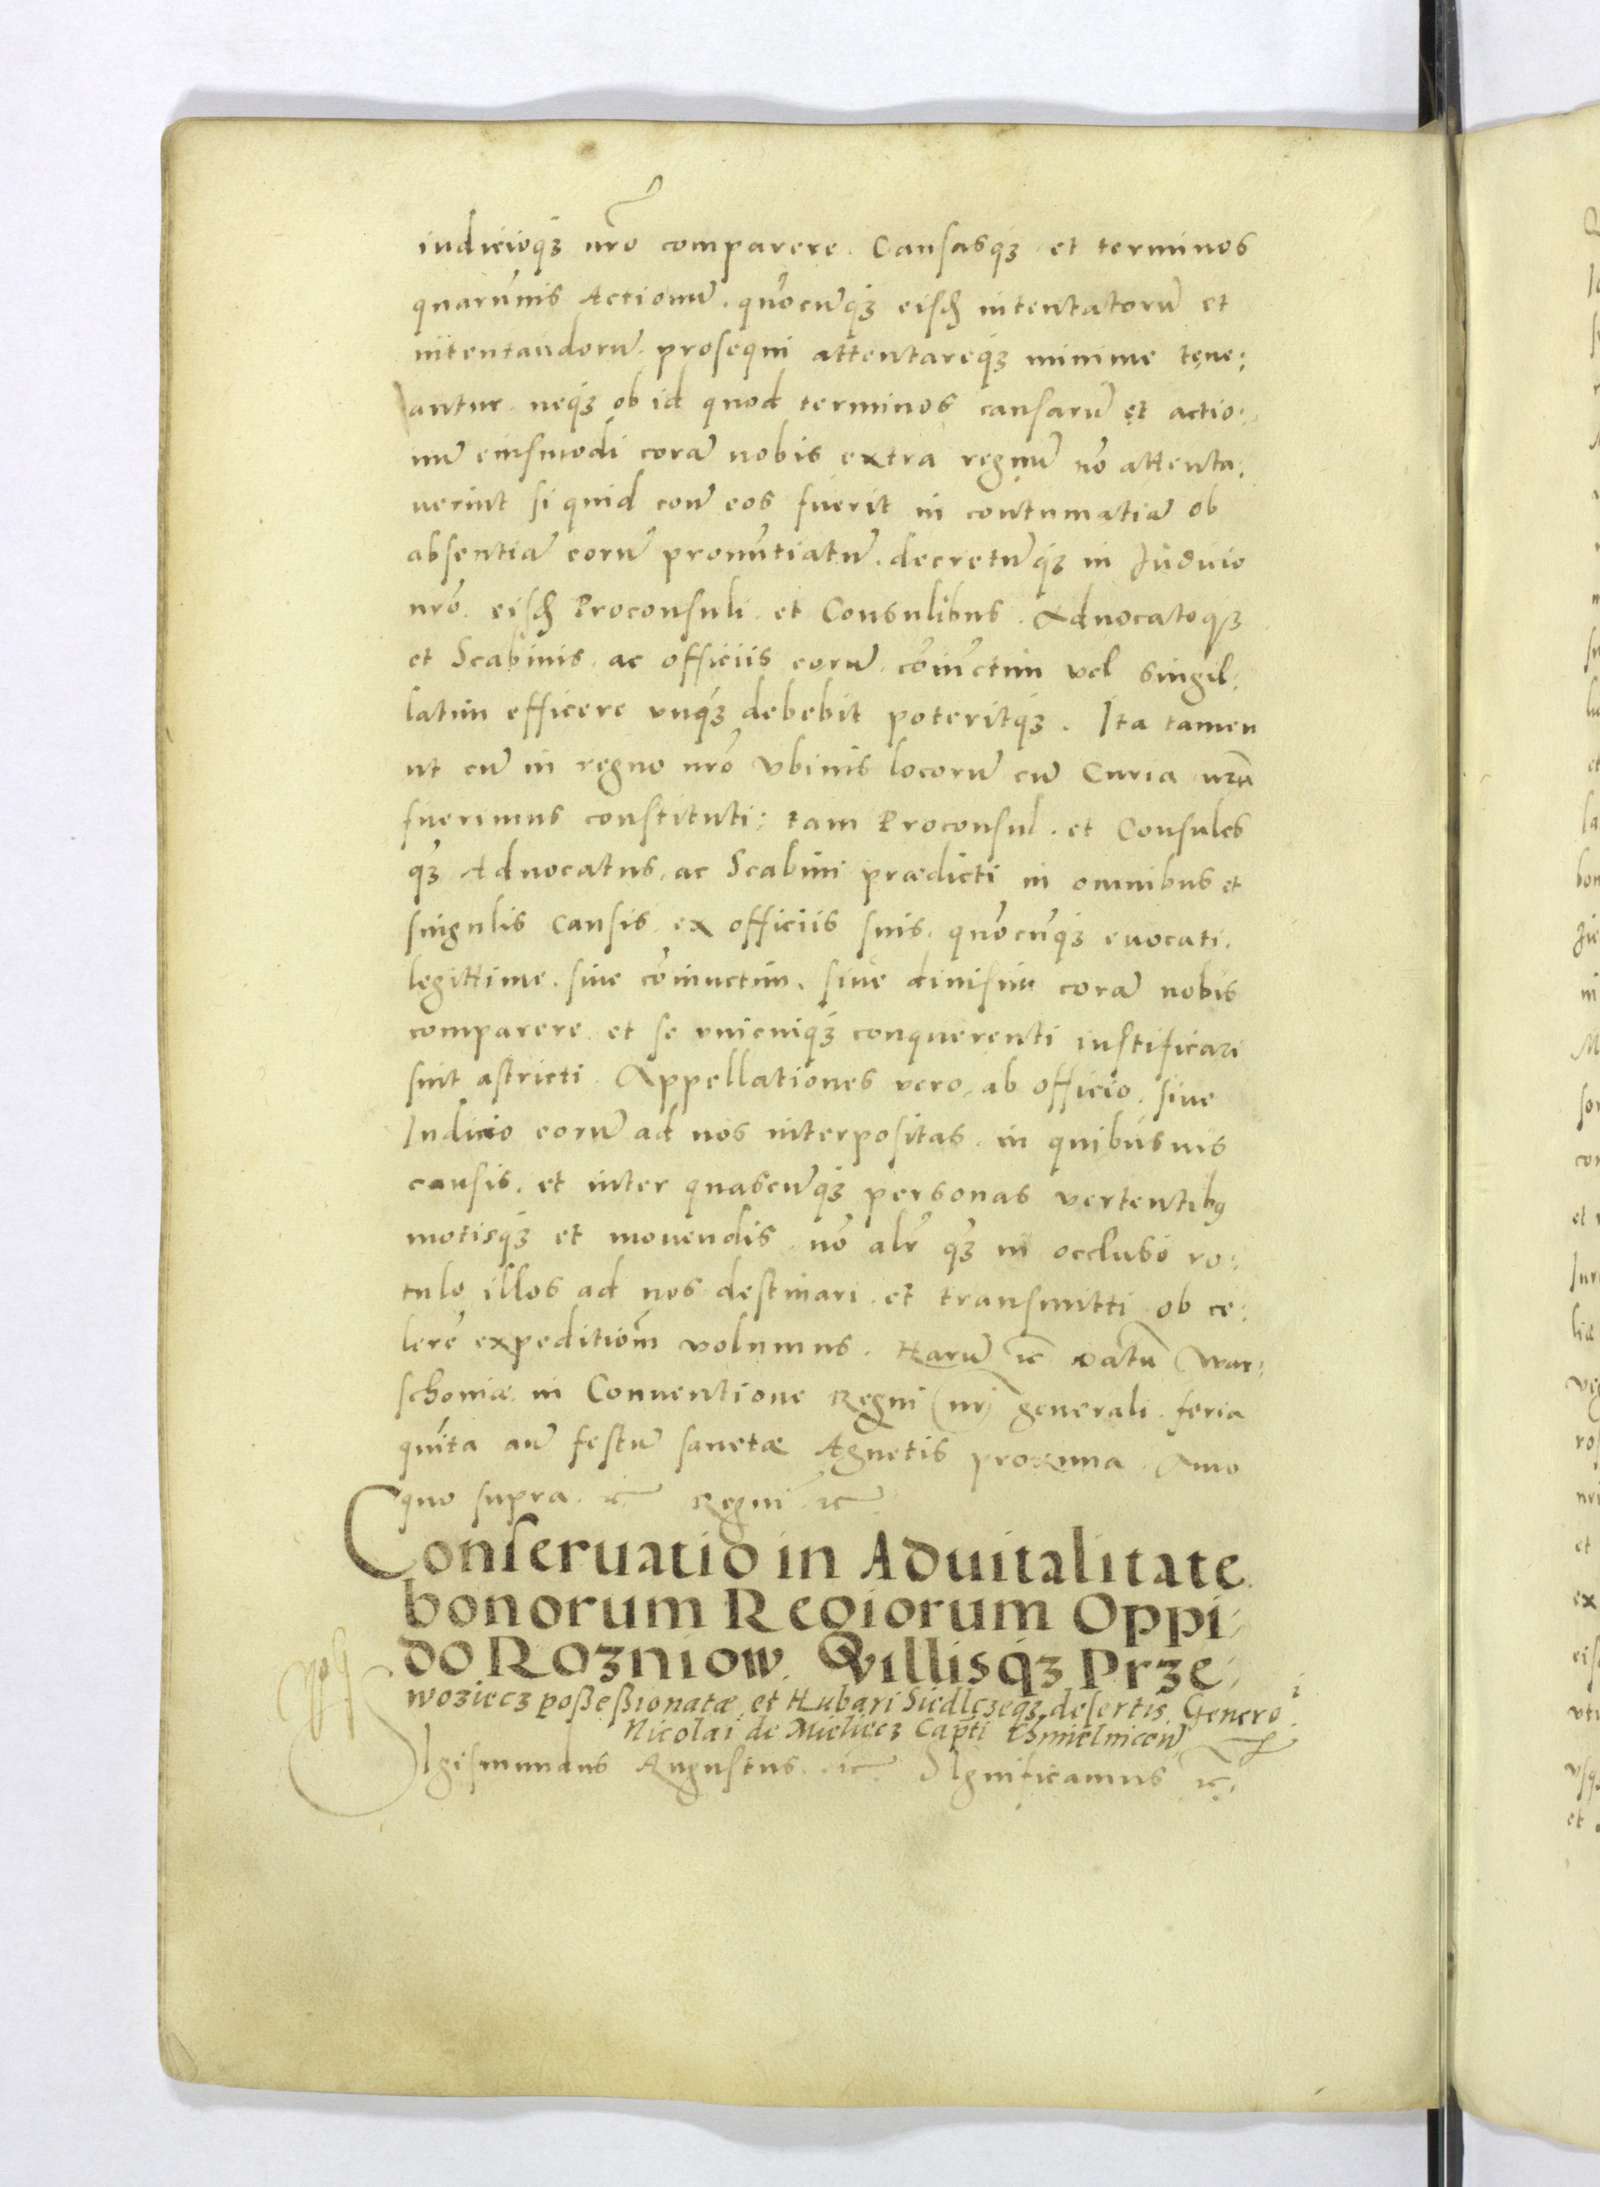 iudicioq₃ nr̃o comparere. Causasq₃ et terminos
quarũuis Actionũ. quõcũq₃ eisd̃ intentatorũ et
intentandorũ. prosequi attentareq₃ minime tene:
antur. neq₃ ob id quod terminos causarũ et actio:
nũ eiusmodi corã nobis extra regnũ nõ attenta:
uerint si quid con̄ eos fuerit in contumatiã ob
absentiã eorũ pronũtiatũ. decretũq₃ in Iudicio
nr̃o. eisd̃ Proconsuli et Consulibus. Aduocatoq₃
et Scabinis ac officiis eorũ cõiũctim vel singil:
latim efficere vnq₃ debebit poteritq₃. Ita tamen
ut cũ in regno nr̃o vbiuis locorũ cũ Curia nr̃a
fuerimus constituti: tam Proconsul. et Consules
q₃ Aduocatus, ac Scabini prædicti in omnibus et
singulis causis ex officiis suis. quõcũq₃ euocati.
legittime. siue cõiunctim. siue diuisim corã nobis
comparere et se vnicuiq₃ conquerenti iustificari
sint astricti. Appellationes vero ab officio. siue
Iudicio eorũ ad nos interpositas in quibusuis
causis. et inter quascũq₃ personas vertentibꝰ
motisq₃ et mouendis nõ alr̃ q₃ in occluso ro:
tulo illos ad nos destinari et transmitti ob ce:
lerẽ expeditiõm volumus. Harũ ⁊c̃ Datũ War:
schouiæ in Conuentione Regni (nr̃i) generali. feria
quĩta añ festũ sanctæ Agnetis proxima. Anno
quo supra. ⁊c̃ Regni ⁊c̃
Conseruatio in Aduitalitate
bonorum Regiorum Oppi:
do Rozniow. Villisq₃ Prze:
woziecz poßeßionatæ et Hubari Siedlczeq₃ desertis. Genero:ⁱ
Nicolai de Mieliecz Cap̃ti Chmielniceñ
Sigismundus Augustus. ⁊c̃ Significamus ⁊c̃.